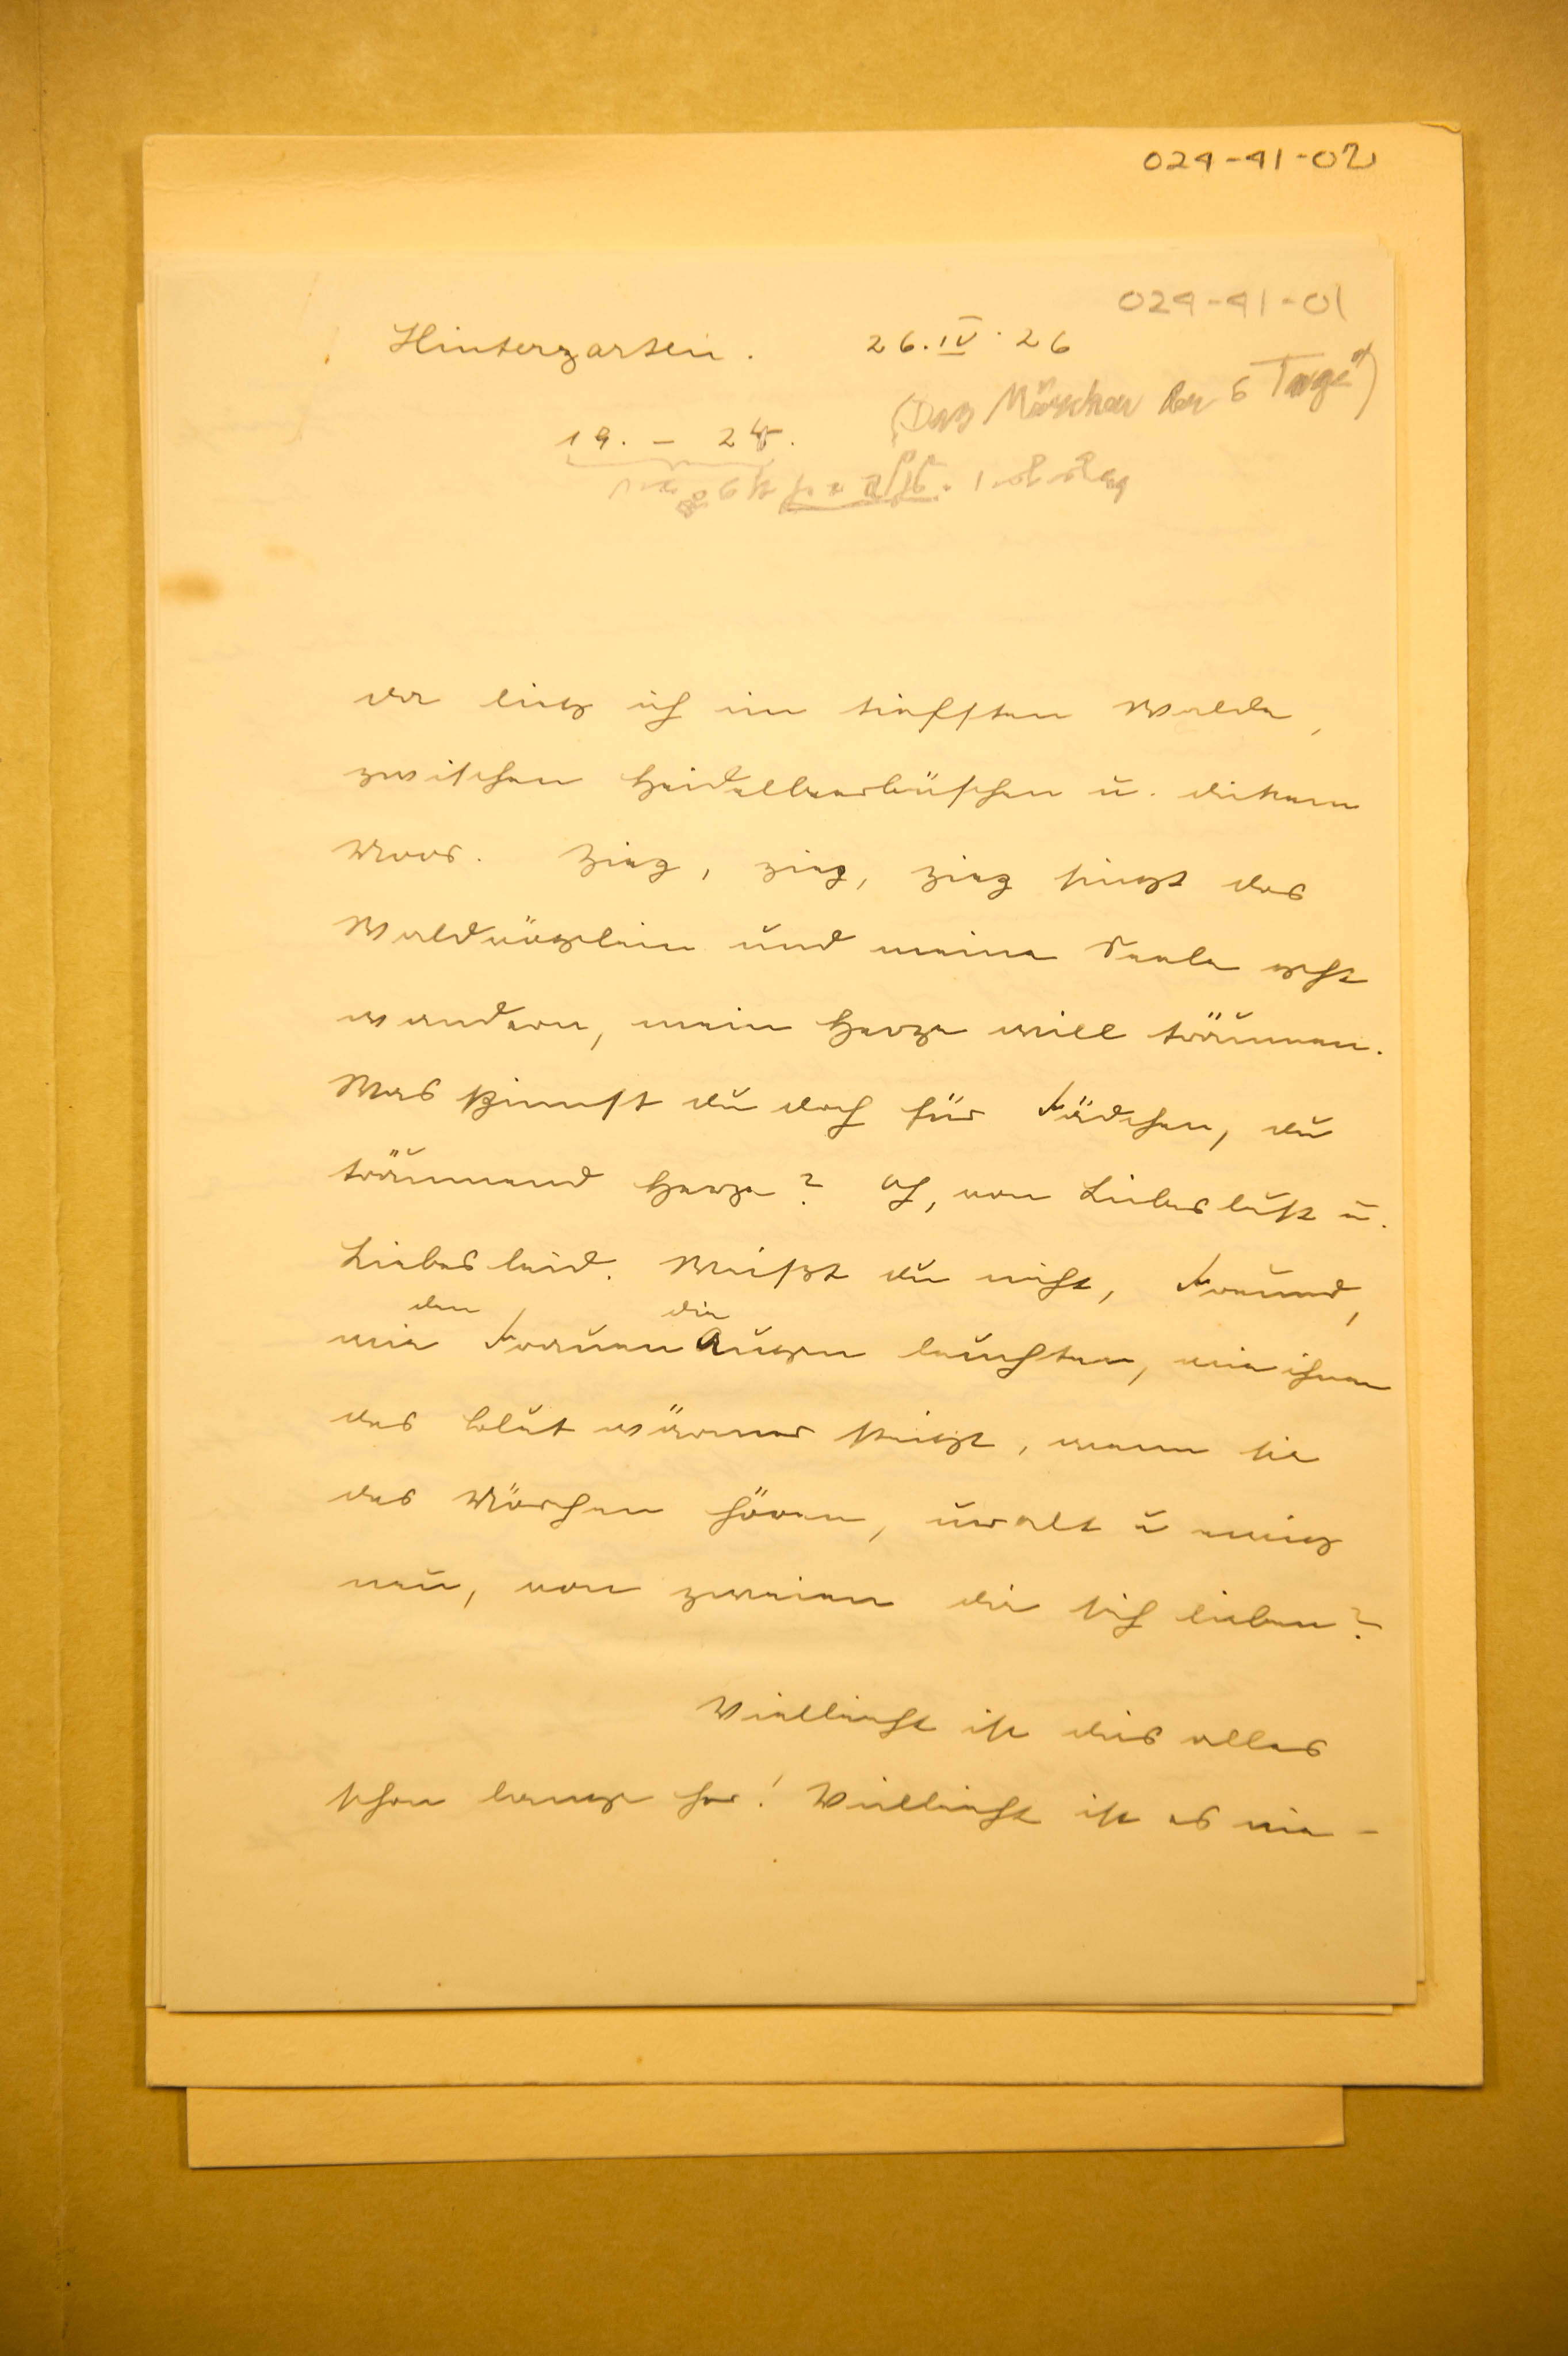 024-41-02
024-41-01
Hinterzarten. 26.IV.26
("Das Märchen der 6 Tage")
19. – 24.
da lieg ich im tiefsten Walde,
zwischen Heidelbeerbüschen u. dickem
Moos. Zieg, zieg, zieg singt das
Waldvögelein und meine Seele geht
wandern, mein Herze will träumen.
Was spinnst du doch für Fädchen, du
träumend Herze? Ach, von Liebeslust u.
Liebesleid. Weißt du nicht, Freund,
wie den Frauen die Augen leuchten, wie ihnen
das Blut wärmer steigt, wenn sie
das Märchen hören, uralt u ewig
neu, von zweien die sich lieben?
Vielleicht ist dies alles
schon lange her! Vielleicht ist es nie –